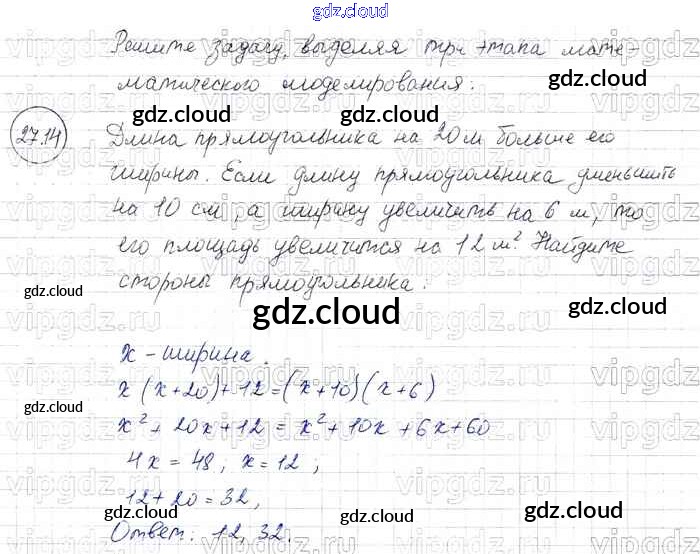 gdz.cloud
Решите задачу, выделяя три этапа мате-
матического моделирования:
27.14
Длина прямоугольника на 20 м больше его
ширины. Если длину прямоугольника уменьшить
на 10 см, а ширину увеличить на 6 м, то
его площадь увеличится на 12 м². Найдите
стороны прямоугольника.
x - ширина.
x(x+20)+12=(x+10)(x+6)
x²+20x+12=x²+10x+6x+60
4x=48; x=12;
12+20=32,
Ответ: 12, 32.
gdz.cloud
gdz.cloud
gdz.cloud
gdz.cloud
gdz.cloud
gdz.cloud
gdz.cloud
gdz.cloud
gdz.cloud
gdz.cloud
gdz.cloud